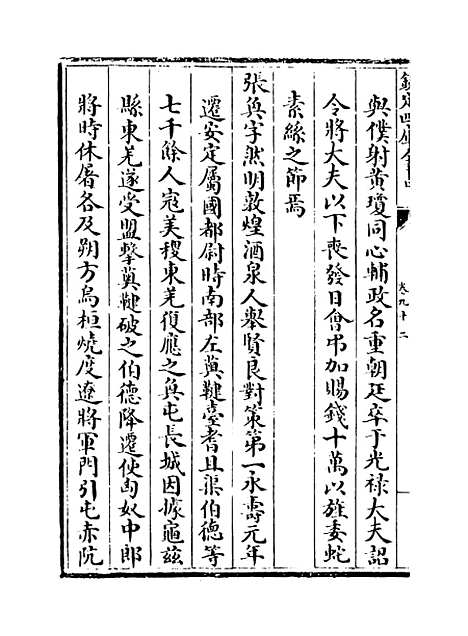 欽定四庫全書
卷九十二
與僕射黃瓊同心輔政名重朝廷卒于光祿大夫詔
令將大夫以下喪發日會弔加賜錢十萬以旌委蛇
素絲之節焉
張奐字然明敦煌酒泉人舉賢良對策第一永壽元年
遷安定屬國都尉時南部左薁鞬臺耆且渠伯德等
七千餘人寇美稷東羌復應之奐屯長城因據龜茲
縣東羌遂受盟擊薁鞬破之伯德降遷使匈奴中郎
將時休屠各及朔方烏桓燒度遼將軍門引屯赤阬